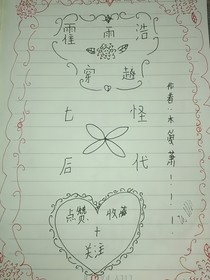 霍雨浩
穿越
七怪
后代
点赞 收藏
+
关注
作者:水爱萧!!!